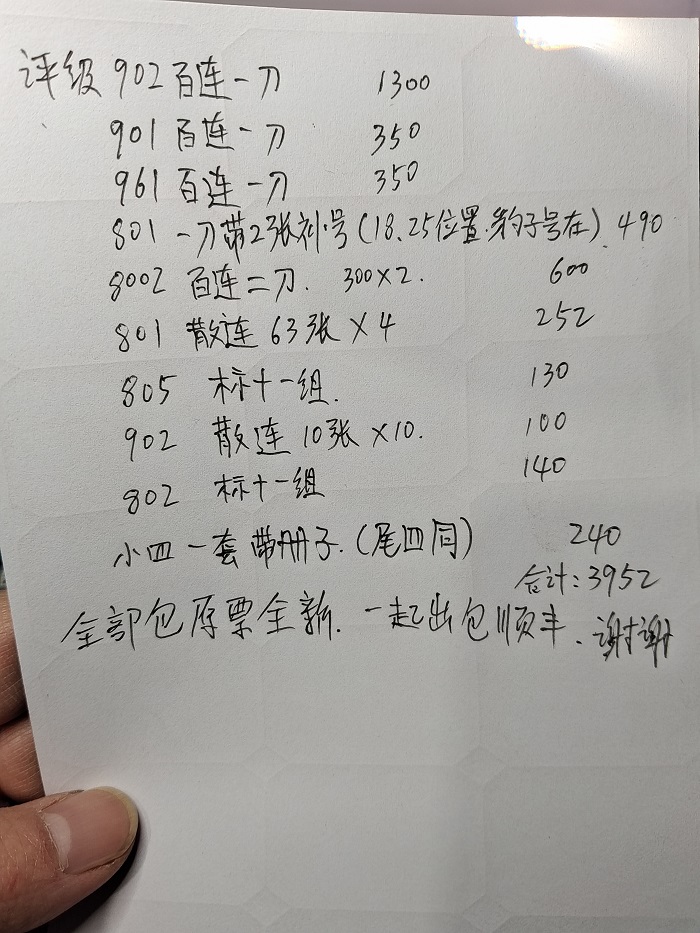 评级 902 百连一刀 1300
901 百连一刀 350
961 百连一刀 350
801 一刀带2张补号(18、25位置.豹子号在). 490
8002 百连二刀. 300×2. 600
801 散连 63张 ×4 252
805 标十一组. 130
902 散连 10张 ×10. 100
802 标十一组 140
小四一套带册子.(尾四同) 240
合计:3952
全部包原票全新. 一起出包顺丰、谢谢